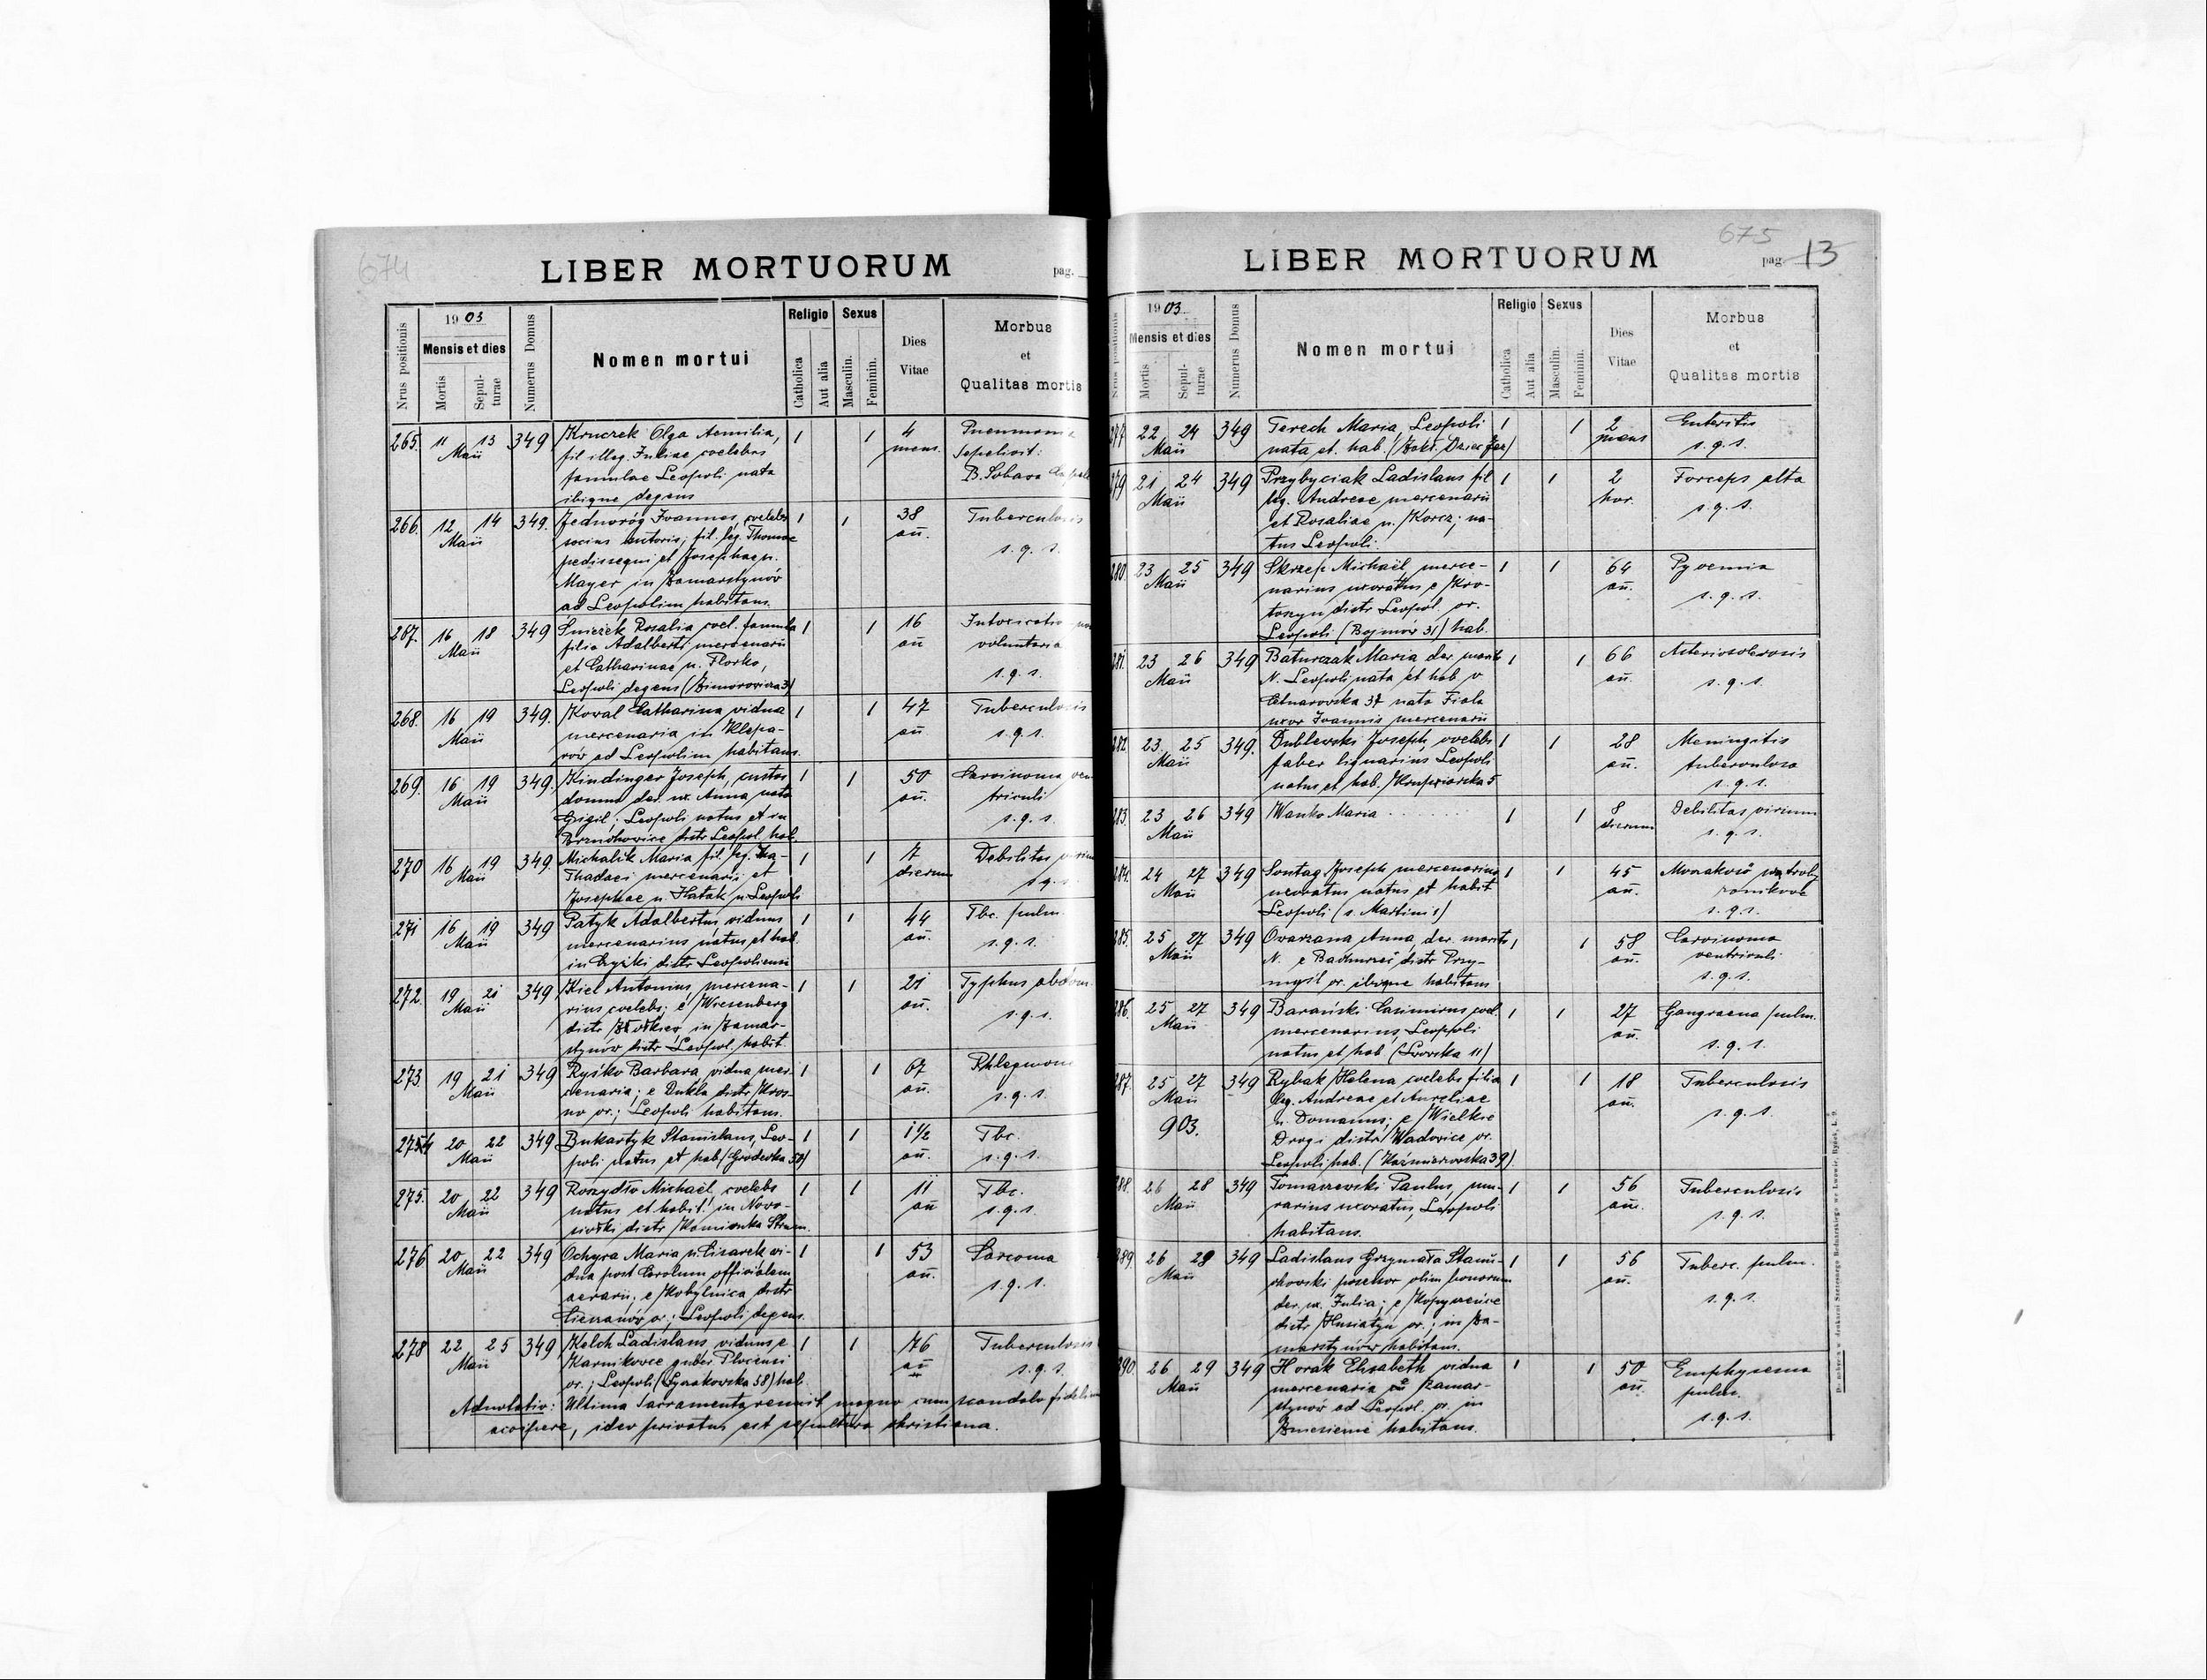 674
LIBER MORTUORUM
pag.
Nrus positionis
1903
Mensis et dies
Mortis
Sepulturae
Numerus Domus
Nomen mortui
Religio
Catholica
Aut alia
Sexus
Masculin.
Feminin.
Dies
Vitae
Morbus
et
Qualitas mortis
265. 11 13 349 Kruczek Olga Aemilia, 1 1 4
Maii fil illeg. Juliae coelebis mens.
famulae Leopoli nata Sepelivit:
ibique degens
266. 12 14 349. Jednoróg Joannes, coelebs 1 1 38 Tuberculosis
Maii socius sutoris; fil. leg. Thomae an̄.
pedissequi et Josephae n. s. q. s.
Mayer in Zamarstynów
ad Leopolim habitans.
267. 16 18 349 Śnieżek Rosalia coel. famula 1 1 16 Intoxicatio
Maii filia Adalberti mercenarii an̄ voluntaria
et Catharinae n. Florko, s. q. s.
Leopoli degens
268. 16 19 349. Kowal Catharina vidua 1 1 47 Tuberculosis
Maii mercenaria in Klepa- an̄. s. q. s.
rów ad Leopolim habitans.
269. 16 19 349. Kindinger Joseph, custos 1 1 50 Carcinoma ven
Maii domus der. ux. Anna nata an̄. triculi
Grigil; Leopoli natus et in s. q. s.
distr Leopol. hab.
270 16 19 349. Michalik Maria fil. leg. 1 1 7 Debilitas
Maii Thadaei mercenarii et dierum s. q. s.
Josephae n. Hatak n. Leopoli
271 16 19 349 Patyk Adalbertus, viduus 1 1 44 Tbc. pulm.
Maii mercenarius natus et hab. an̄. s. q. s.
in distr Leopoliensi
272. 19 21 349 Kiel Antonius, mercena- 1 1 21 Typhus abdom.
Maii rius coelebs; e Wiesenberg an̄. s. q. s.
distr Żółkiew in Zamar-
stynów distr Leopol. habit.
273 19 21 349 Ryśko Barbara vidua mer- 1 1 67 Phlegmone
Maii cenaria; e Dukla distr Kros- an̄. s. q. s.
no or.; Leopoli habitans.
274 20 22 349 Bukartyk Stanislaus, Leo- 1 1 1 1/2 Tbc.
Maii poli natus et hab. (Grodecka 58) an̄. s. q. s.
275. 20 22 349 Roszydło Michaël, coelebs 1 1 11 Tbc.
Maii natus et habit. in Nowo- an̄ s. q. s.
siołki distr Kamionka Strum.
276 20 22 349 Ochyra Maria n. Cisarek vi- 1 1 53 Sarcoma
Maii dua post Carolum officialem an̄. s. q. s.
aerarii; e Kobylnica distr
Cieszanów or.; Leopoli degens.
278 22 25 349 Kelch Ladislaus, viduus e 1 1 76 Tuberculosis
Maii Karnikowce guber. Plocensi an̄ s. q. s.
or.; Leopoli (Łyczakowska 58) hab.
Adnotatio: Ultima Sacramenta renuit magno cum scandalo fidelium
accipere, ideo privatus est sepultura christiana.
675
LIBER MORTUORUM
pag. 13
Nrus positionis
1903
Mensis et dies
Mortis
Sepulturae
Numerus Domus
Nomen mortui
Religio
Catholica
Aut alia
Sexus
Masculin.
Feminin.
Dies
Vitae
Morbus
et
Qualitas mortis
277 22 24 349 Terech Maria, Leopoli 1 1 2 Enteritis
Maii nata et hab. (Zakł. Dziec. Jez) mens s. q. s.
279 21 24 349 Przybyciak Ladislaus fil 1 1 2 Forceps alta
Maii leg. Andreae mercenarii hor. s. q. s.
et Rosaliae n. Korcz; na-
tus Leopoli.
280. 23 25 349 Skrzep Michaël, merce- 1 1 64 Pyoemia
Maii narius uxoratus e Kro- an̄. s. q. s.
toszyn distr Leopol. or.
Leopoli (Bojmów 31) hab.
281. 23 26 349 Baturczak Maria der. marit 1 1 66 Arteriosclerosis
Maii N. Leopoli nata et hab. an̄. s. q. s.
37 nata Fiala
uxor Joannis mercenarii
282 23 25 349. Dublewski Joseph, coelebs 1 1 28 Meningitis
Maii faber lignarius Leopoli an̄. tuberculosa
natus et hab. Krupiarska 5 s. q. s.
283. 23 26 349 Wanko Maria 1 1 8 Debilitas virium
Maii dierum s. q. s.
284. 24 27 349 Sontag Joseph mercenarius 1 1 45
Maii uxoratus natus et habit an̄.
Leopoli (s. Martini 1) s. q. s.
285. 25 27 349 Owarzana Anna, der. marit 1 1 58 Carcinoma
Maii N. e distr Przy- an̄. ventriculi
myśl or. ibique habitans s. q. s.
286. 25 27 349 Barański Casimirus coel. 1 1 27 Gangraena pulm.
Maii mercenarius, Leopoli an̄. s. q. s.
natus et hab (Lwowska 11)
287. 25 27 349 Rybak Helena coelebs filia 1 1 18 Tuberculosis
Maii leg. Andreae et Aureliae an̄. s. q. s.
903. n. Domanus; e Wielkie
Drogi distr Wadowice or.
Leopoli hab. (Kaźmierzowska 39).
288. 26 28 349 Tomaszewski Paulus, mu- 1 1 56 Tuberculosis
Maii rarius uxoratus, Leopoli an̄. s. q. s.
habitans.
289. 26 28 349 Ladislaus Grzymała Stani- 1 1 56 Tuberc. pulm.
Maii chowski possesor olim bonorum an̄. s. q. s.
der. ux. Julia; e Kopyczeńce
distr Husiatyn or.; in Za-
marstynów habitans.
290. 26 29 349 Horak Elisabeth vidua 1 1 50 Emphysema
Maii mercenaria Zamar- an̄. pulm.
stynów ad Leopol. or. in s. q. s.
Zniesienie habitans.